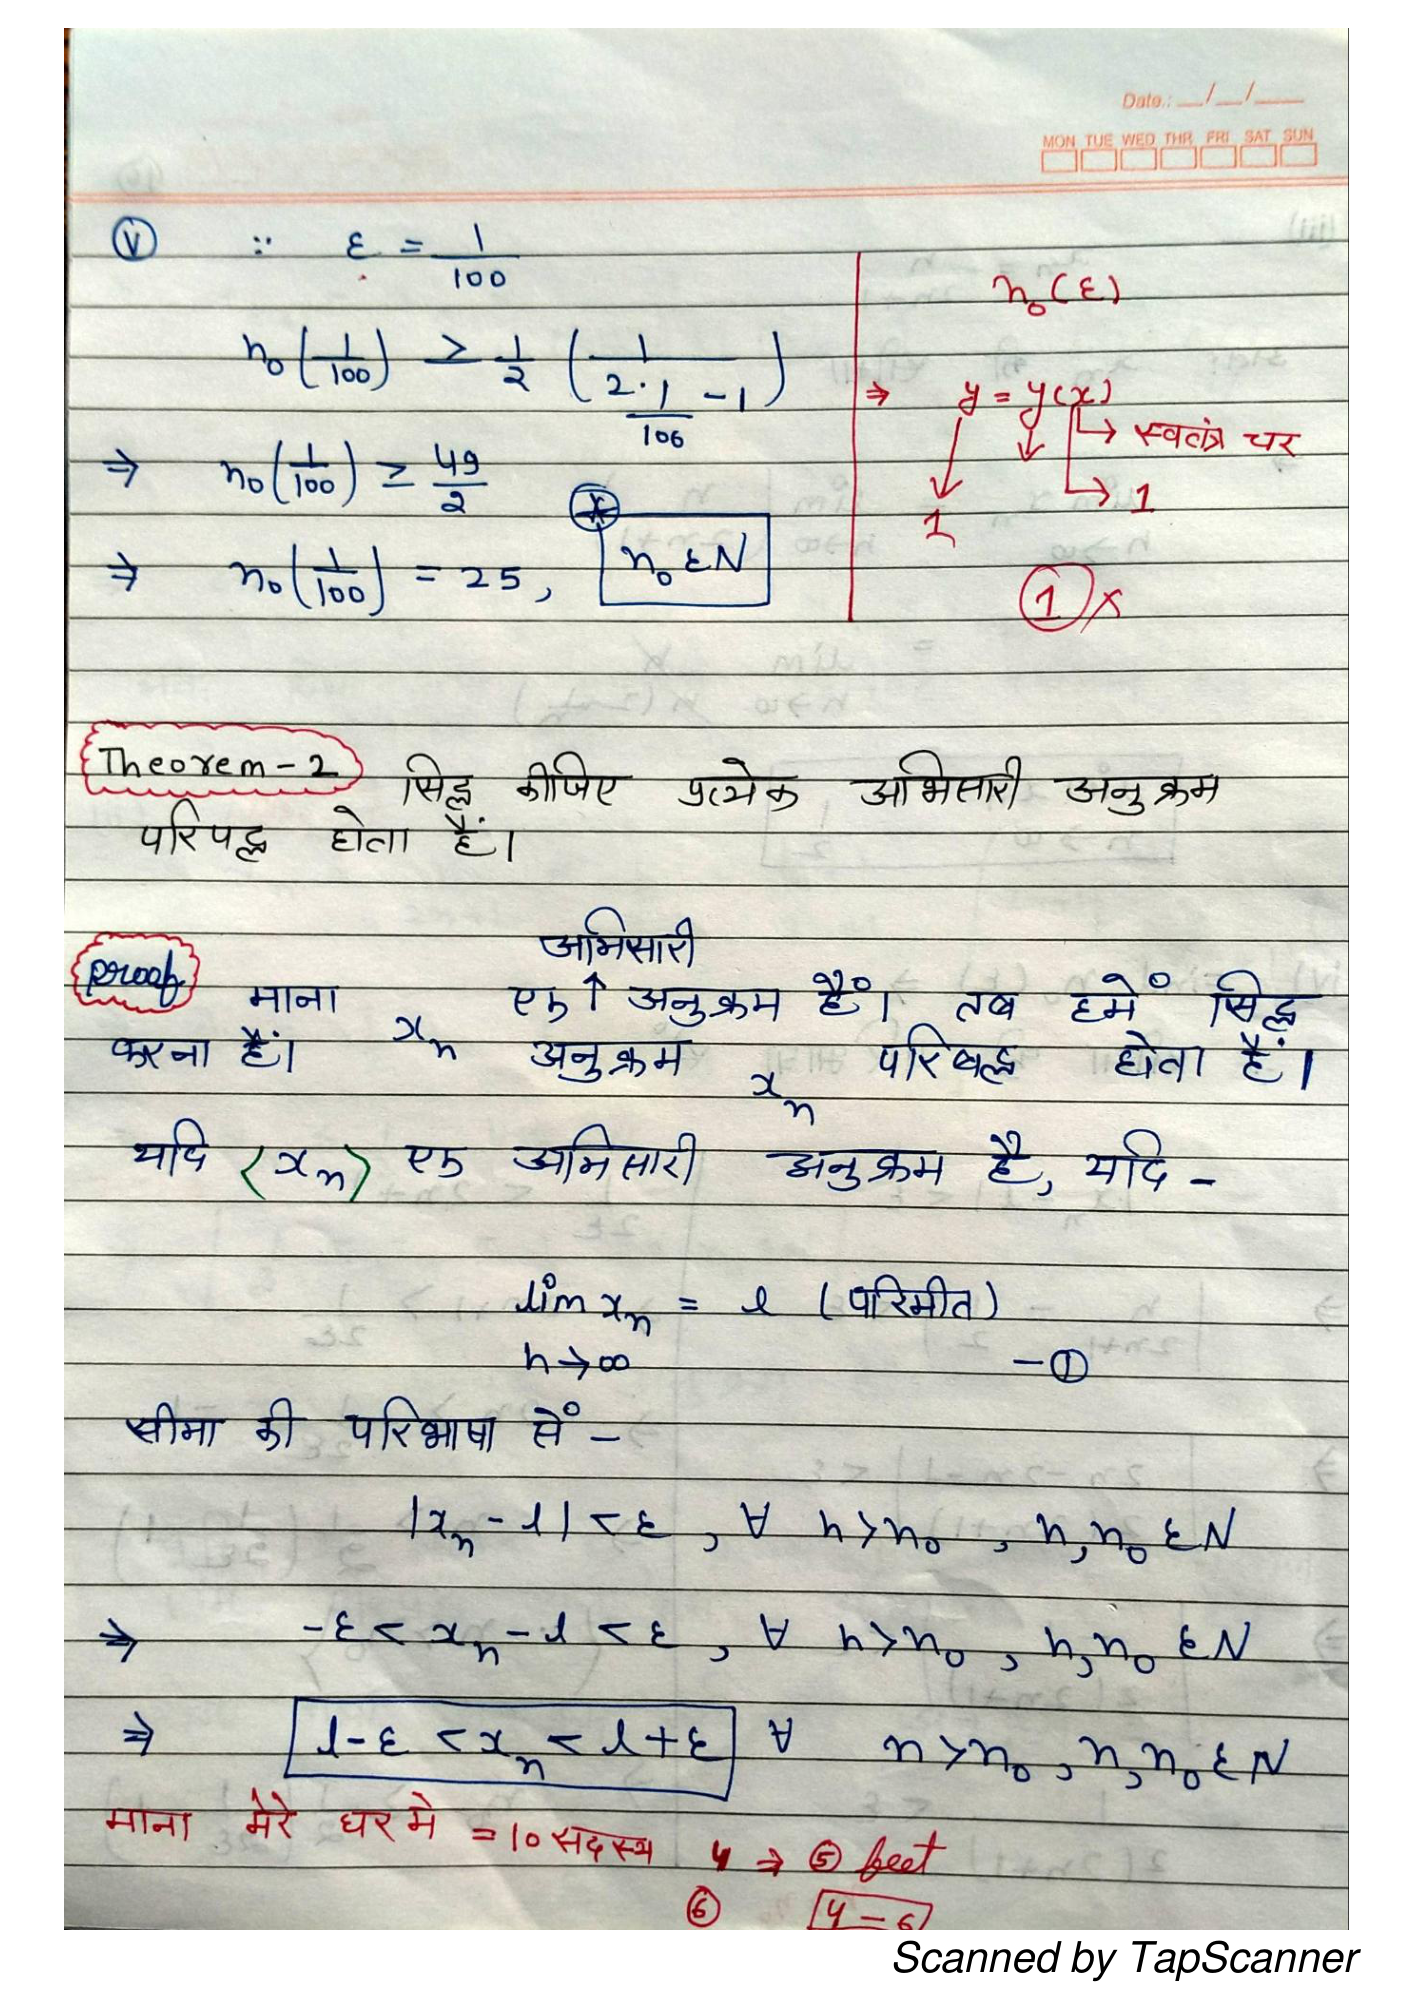 Date.: __/__/__
MON TUE WED THR FRI SAT SUN
(v) ∵ ε = 1/100
n₀(1/100) ≥ 1/2 (1/(2·1/100) - 1)
⇒ n₀(1/100) ≥ 49/2
⇒ n₀(1/100) = 25, n₀ ε N
n₀(ε)
⇒ y = y(x)
→ स्वतंत्र चर
1 → 1
① ×
Theorem-2 सिद्ध कीजिए प्रत्येक अभिसारी अनुक्रम
परिपद्ध होता हैं।
अभिसारी
Proof माना xₙ एक ↑ अनुक्रम हैं। तब हमें सिद्ध
करना हैं। अनुक्रम xₙ परिबद्ध होता हैं।
यदि ⟨xₙ⟩ एक अभिसारी अनुक्रम है, यदि -
lim xₙ = l (परिमीत)
n→∞ -①
सीमा की परिभाषा सें -
|xₙ - l| < ε, ∀ n>n₀, n,n₀ ε N
⇒ -ε < xₙ - l < ε, ∀ n>n₀, n,n₀ ε N
⇒ l-ε < xₙ < l+ε ∀ n>n₀, n,n₀ ε N
माना मेरे घर मे = 10 सदस्य 4 ⇒ ⑤ feet
⑥ 4 - 6
Scanned by TapScanner